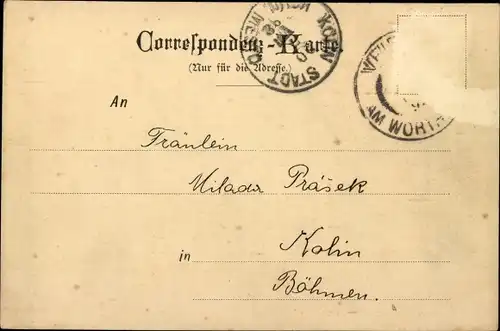 Correspondenz-Karte.
(Nur für die Adresse.)
KOLIN STADT
AM WÖRTH
An
Fräulein
Milada Prášek
in Kolin
Böhmen.